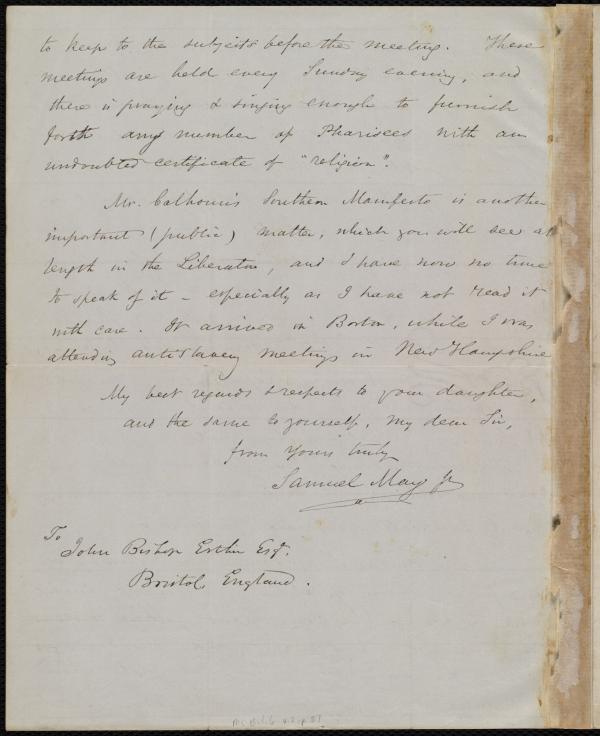 to keep to the subjects before the meeting. These
meetings are held every Sunday evening, and
there is praying & singing enough to furnish
forth any number of Pharisees with an
undoubted certificate of "religion".
Mr. Calhoun's Southern Manifesto is another
important (public) matter, which you will see at
length in the Liberator, and I have now no time
to speak of it - especially as I have not read it
with care. It arrived in Boston, while I was
attending antislavery meetings in New Hampshire
My best regards & respects to your daughter,
and the same to yourself, my dear Sir,
from yours truly
Samuel May Jr
To
John Bishop Estlin Esq.
Bristol, England.